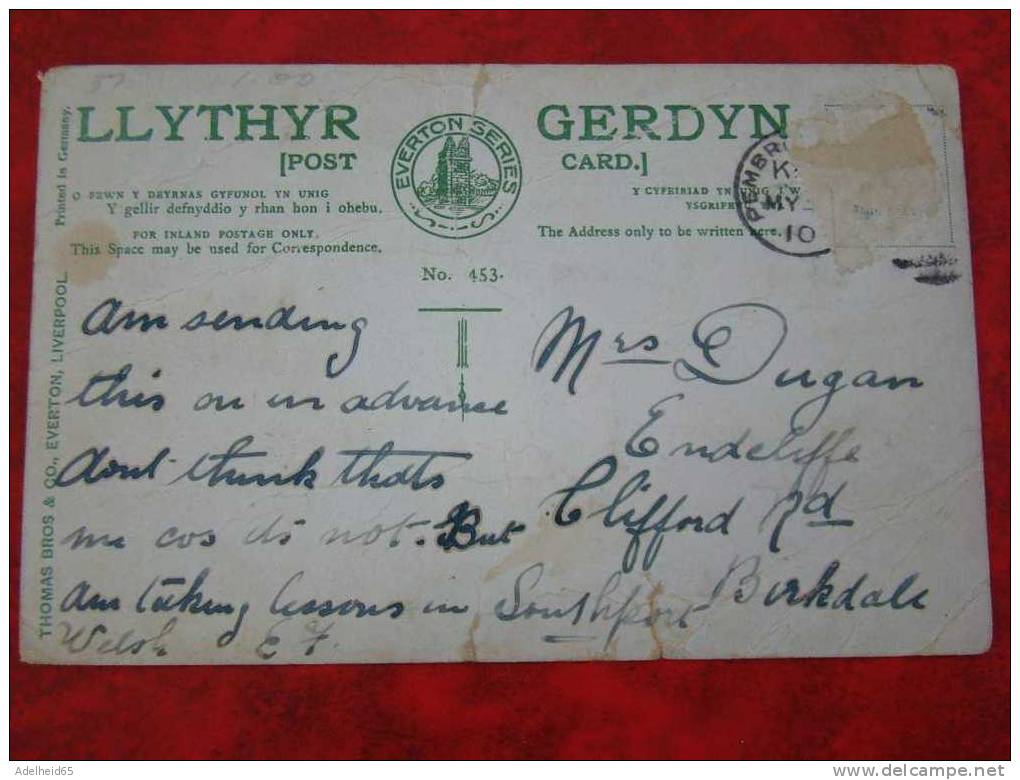 57 1.00
LLYTHYR GERDYN
[POST CARD.]
EVERTON SERIES
O FEWN Y DEYRNAS GYFUNOL YN UNIG
Y gellir defnyddio y rhan hon i ohebu.
FOR INLAND POSTAGE ONLY.
This Space may be used for Correspondence.
Y CYFEIRIAD YN UNIG I'W
YSGRIFENNU
The Address only to be written here.
No. 453.
PEMBRO
K
MY
10
Printed in Germany.
THOMAS BROS & CO., EVERTON, LIVERPOOL.
Am sending
this on in advance
dont think thats
me cos its not. But
am taking lessons in
Welsh E F.
Mrs Dugan
Endcliffe
Clifford Rd
Birkdale
Southport
Adelheid65
www.delcampe.net